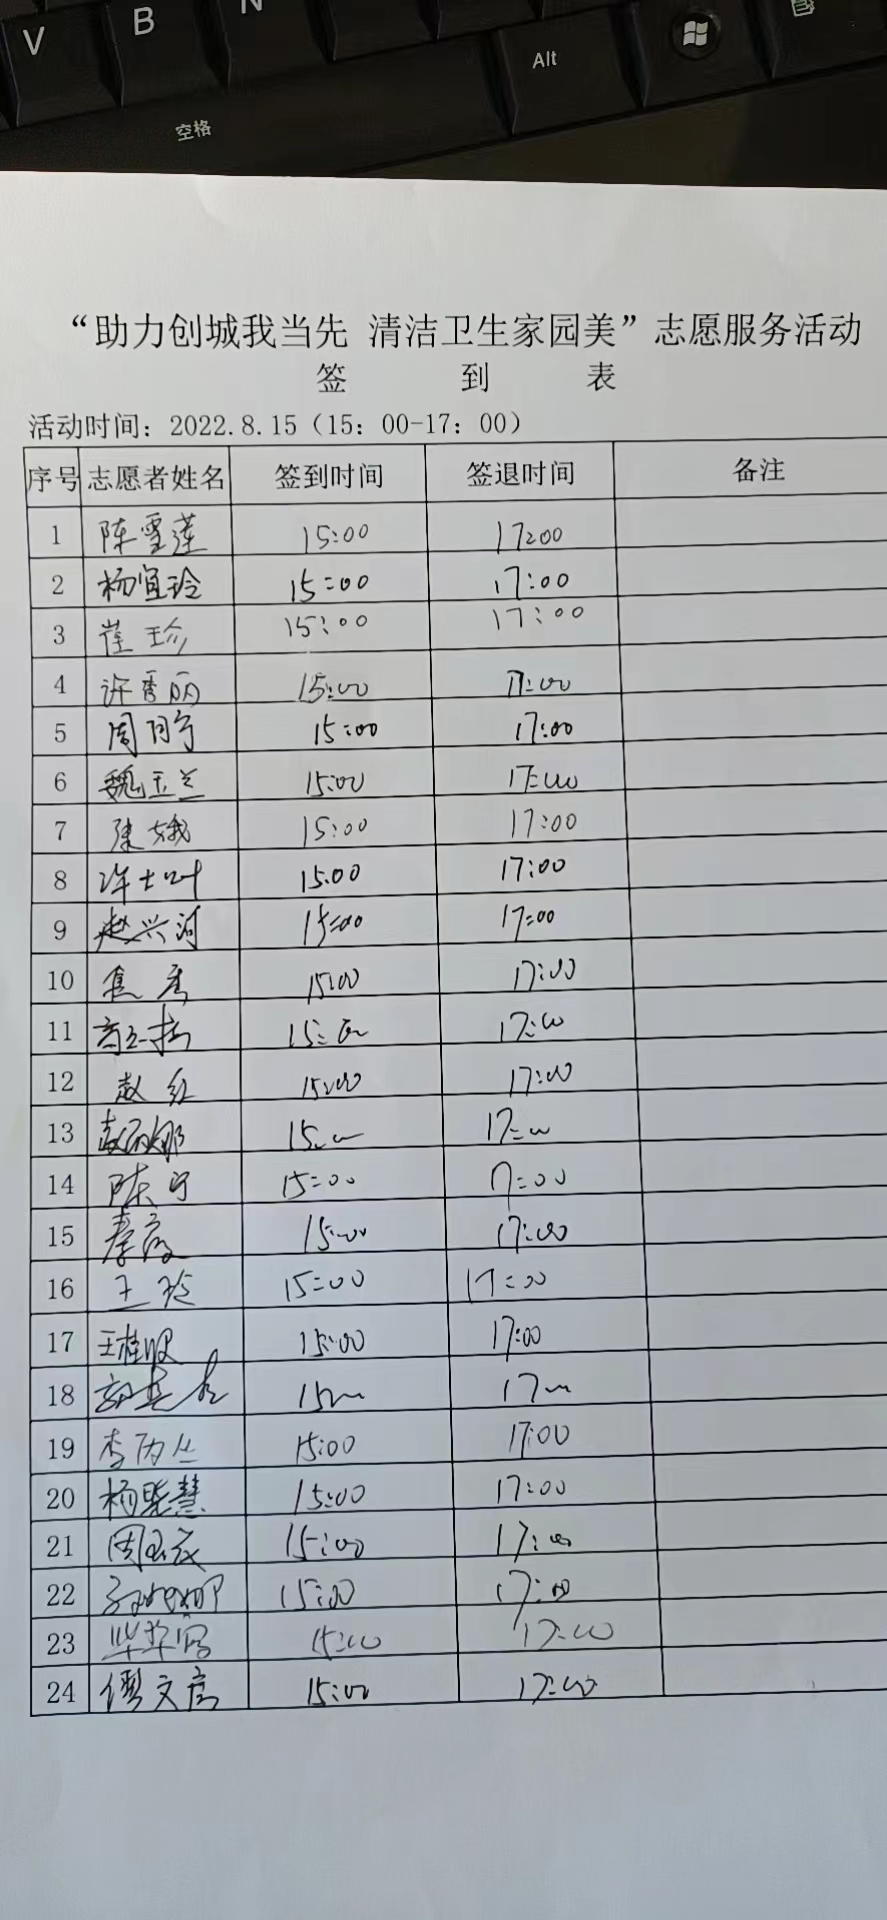 V B N
Alt
空格
“助力创城我当先 清洁卫生家园美”志愿服务活动
签 到 表
活动时间：2022.8.15（15：00-17：00）
序号 志愿者姓名 签到时间 签退时间 备注
1 陈雪莲 15:00 17:00
2 杨宜玲 15:00 17:00
3 崔珍 15:00 17:00
4 许秀丽 15:00 17:00
5 周丹宁 15:00 17:00
6 魏玉兰 15:00 17:00
7 陈娥 15:00 17:00
8 许士叶 15:00 17:00
9 赵兴河 15:00 17:00
10 焦秀 15:00 17:00
11 15:00 17:00
12 赵红 15:00 17:00
13 赵丽娜 15:00 17:00
14 陈宁 15:00 17:00
15 秦霞 15:00 17:00
16 王玲 15:00 17:00
17 15:00 17:00
18 15:00 17:00
19 15:00 17:00
20 杨晓慧 15:00 17:00
21 15:00 17:00
22 15:00 17:00
23 15:00 17:00
24 15:00 17:00